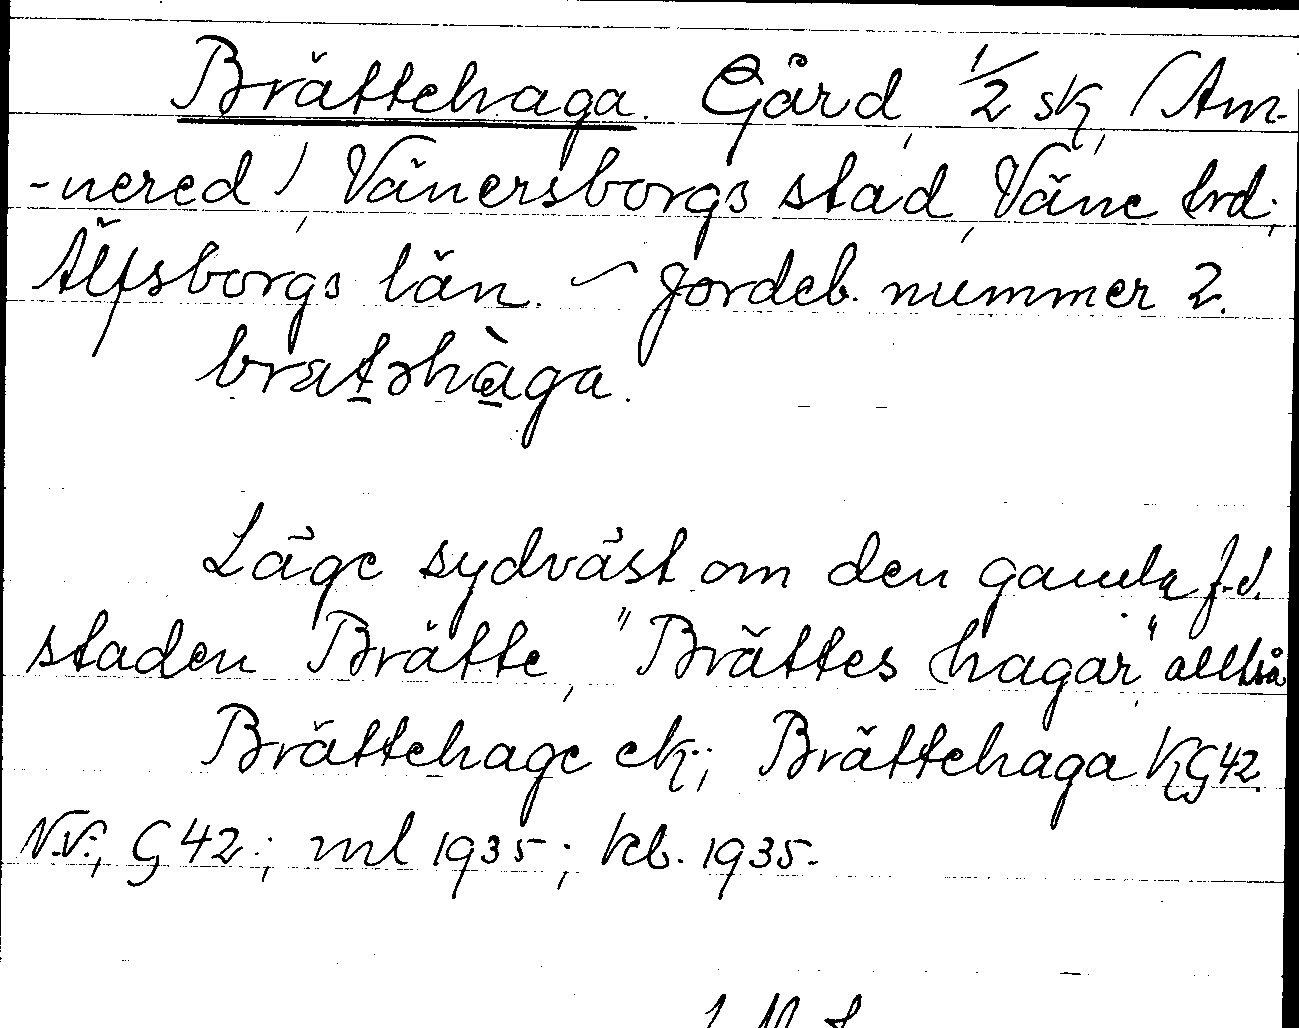 Brättehaga. Gård, 1/2 sk, (Am-
-nered), Vänersborgs stad, Väne hrd;
Älfsborgs län. – Jordeb. nummer 2.
bratəhàga.
Läge sydväst om den gamla f.d.
staden Brätte, "Brättes hagar", alltså
Brättehage ek; Brättehaga KG 42.
N.V., G 42; ml 1935; kb. 1935.